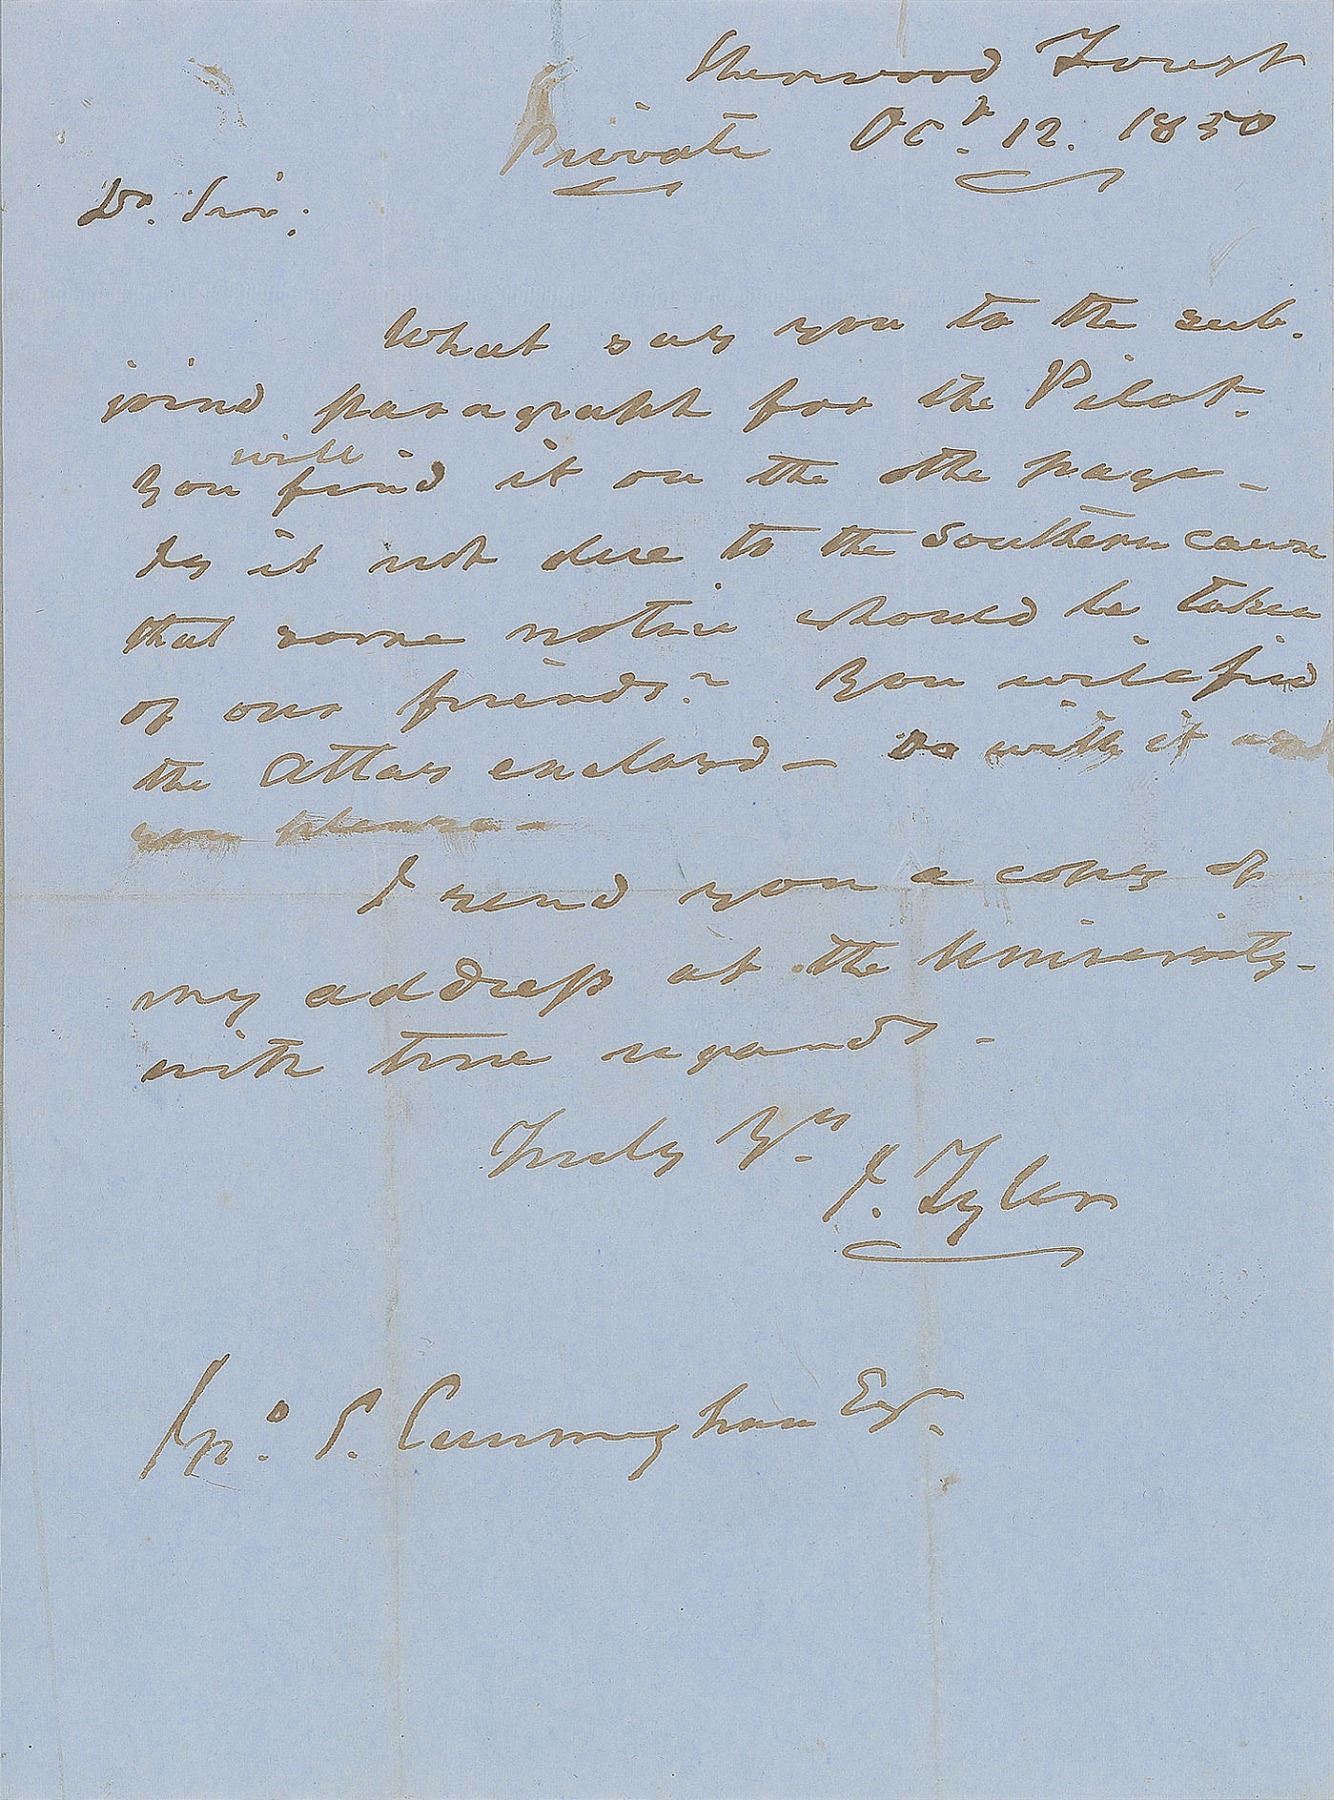 Sherwood Forest
Private Oct. 12. 1850
Dr. Sir:
What say you to the sub-
joind paragraph for the Pilot.
You will find it on the othe page -
Is it not due to the Southern cause
that some notice should be taken
of our friends? You will find
the Attas enclosed - Do with it as
you please -
I send you a copy of
my address at the University -
with true regards -
Truly Yrs.
J. Tyler
Jno. S. Cunningham Esqr.